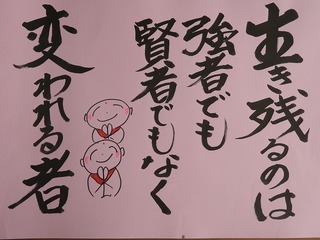 生き残るのは
強者でも
賢者でもなく
変われる者